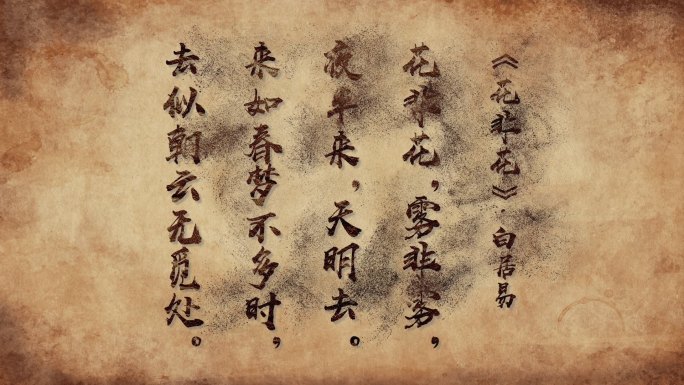 《花非花》·白居易
花非花，雾非雾，
夜半来，天明去。
来如春梦不多时，
去似朝云无觅处。